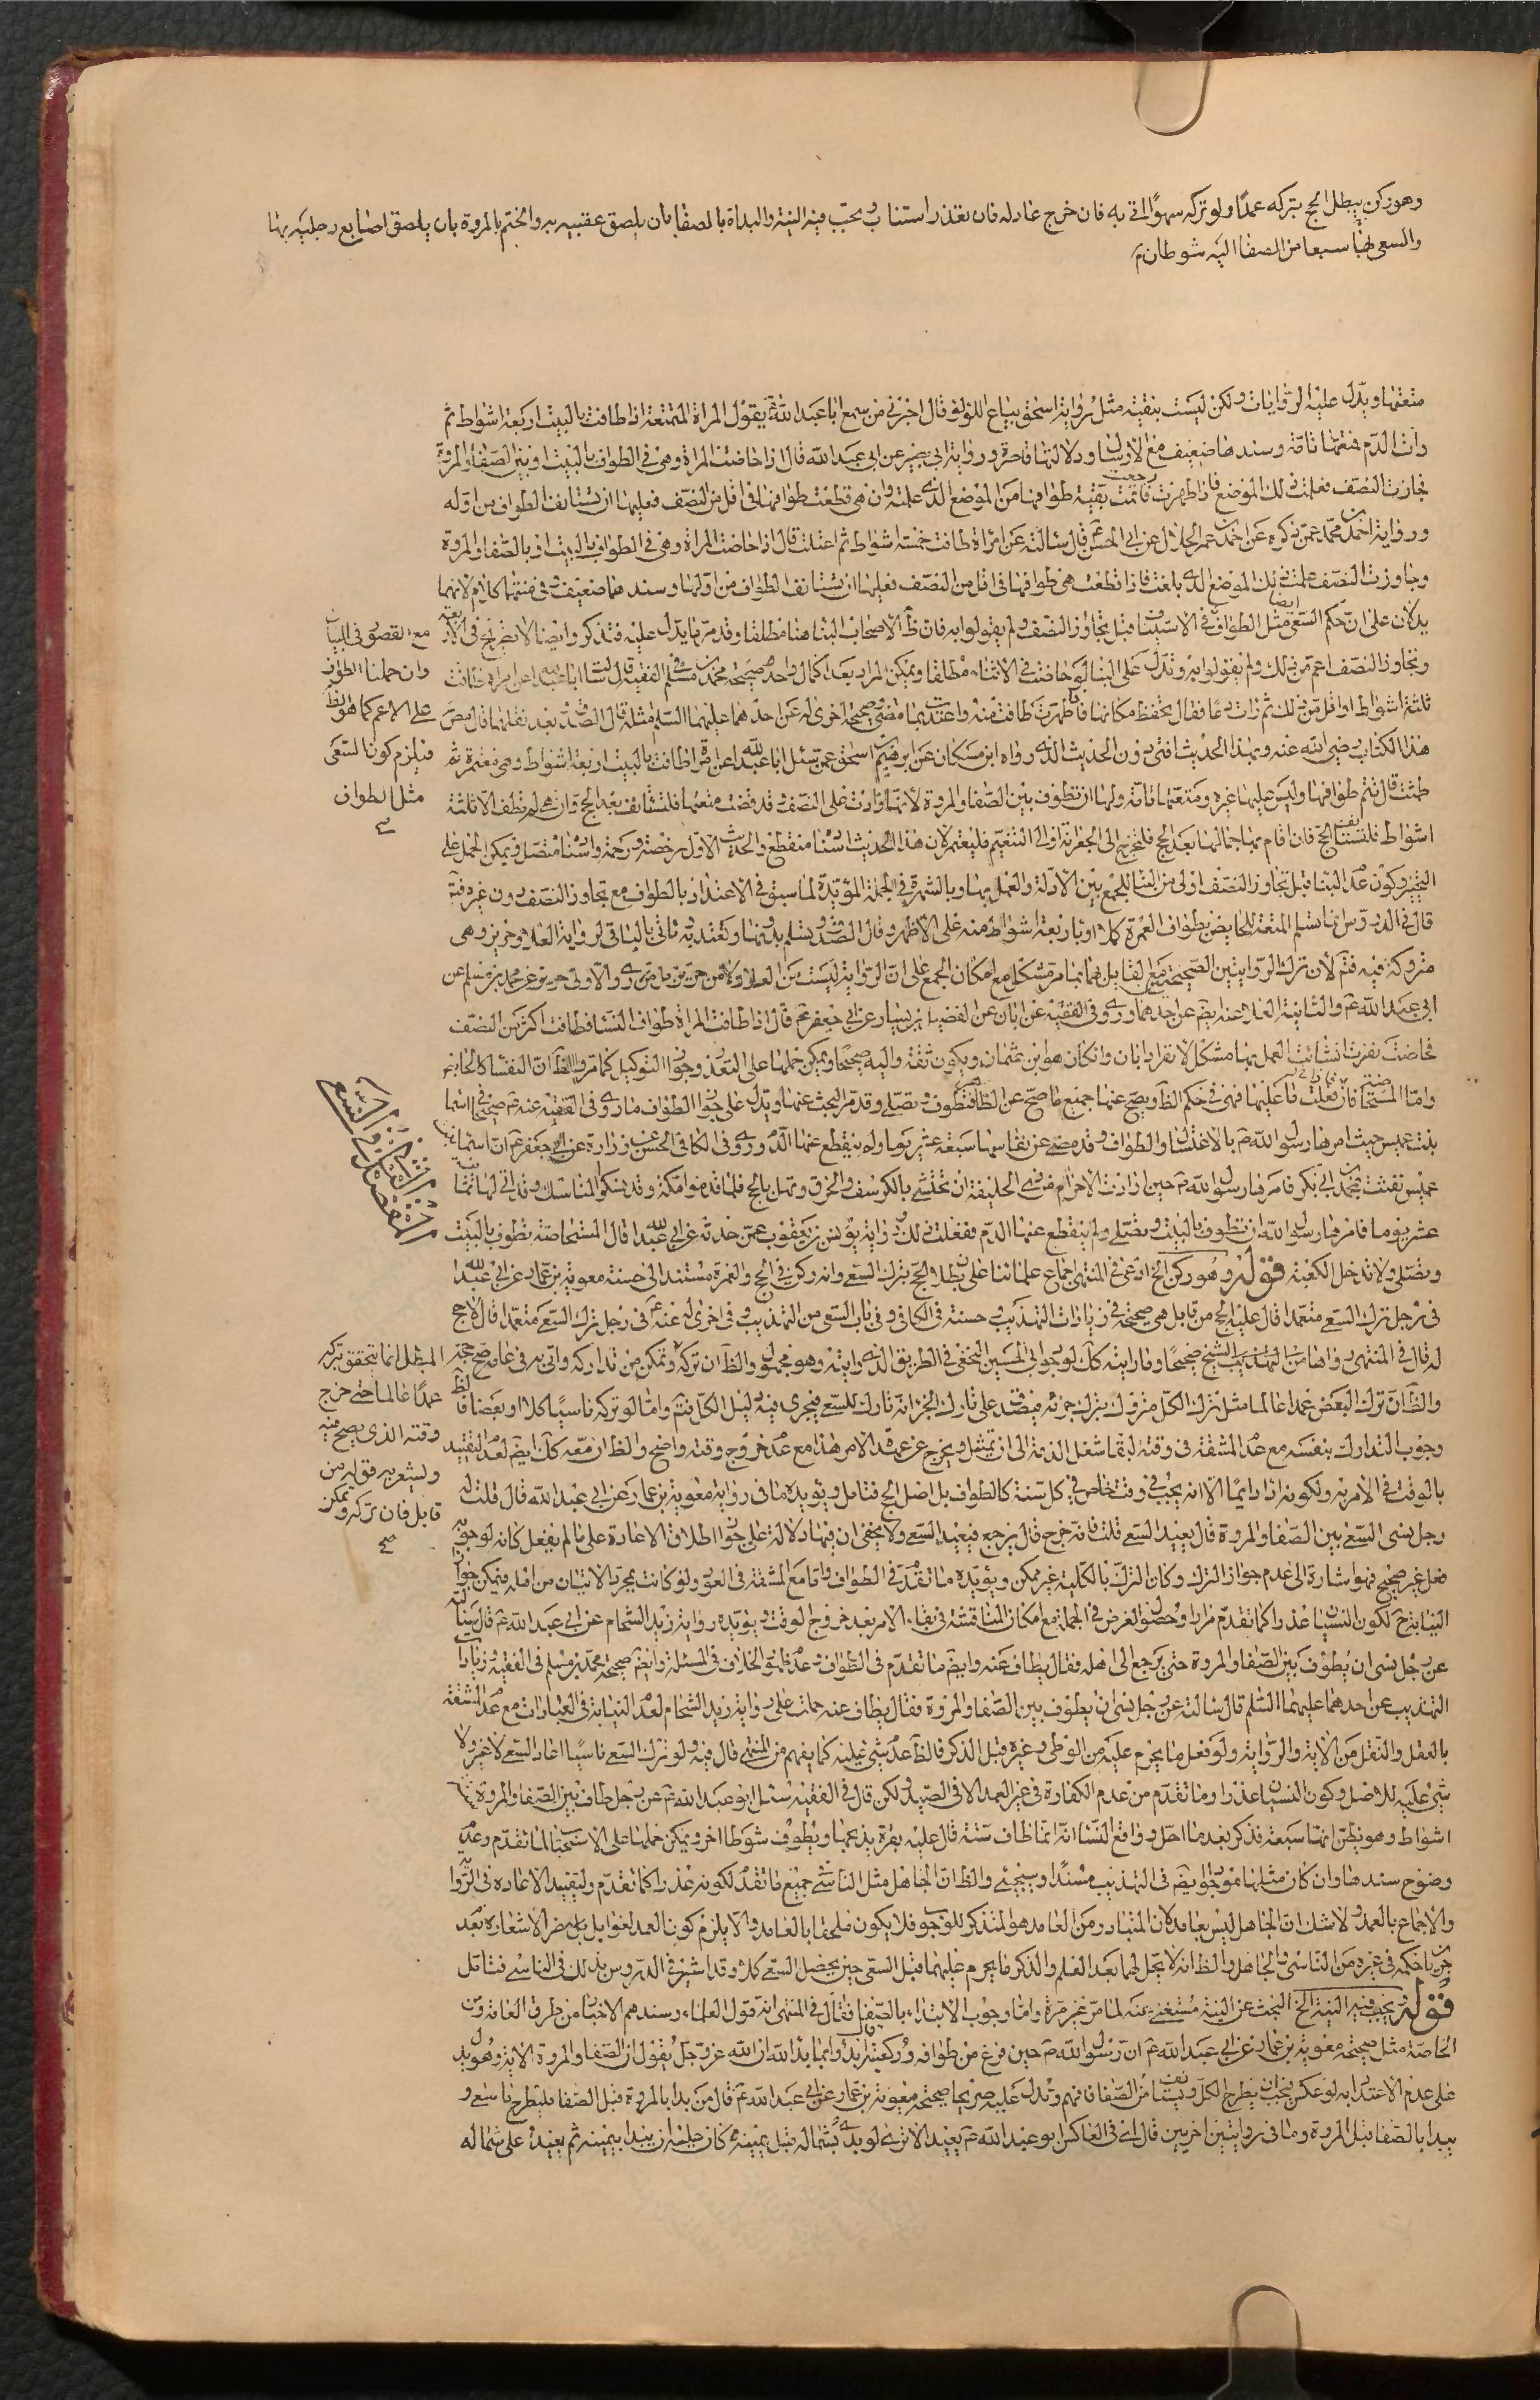 وهو ركن يبطل الحج بتركه عمدًا ولو تركه سهوًا اتى به فان خرج عاد له فان تعذر استناب ويجب فيه النية والبداة بالصفا بان يلصق عقبيه به والختم بالمروة بان يلصق اصابع رجليه بها
والسعى بينهما سبعا من الصفا اليه شوطان
متعتها ويدل عليه الروايات ولكن ليست بنقية مثل رواية اسحق بياع اللؤلؤ قال اخبرنى من سمع ابا عبد الله ع يقول المراة المتمتعة اذا طافت بالبيت اربعة اشواط ثم
رات الدم فمتعتها تامة وسندها ضعيف مع الارسال ودلالتها قاصرة ورواية ابى بصير عن ابى عبد الله قال اذا حاضت المراة وهى فى الطواف بالبيت او بين الصفا والمروة
فجازت النصف فعلمت ذلك الموضع فاذا طهرت رجعت فاتمت بقية طوافها من الموضع الذى علمته وان هى قطعت طوافها فى اقل من النصف فعليها ان تستانف الطواف من اوله
ورواية احمد بن محمد عمن ذكره عن احمد بن عمر الحلال عن ابى الحسن ع قال سالته عن امراة طافت خمسة اشواط ثم اعتلت قال اذا حاضت المراة وهى فى الطواف بالبيت او بالصفا والمروة
وجاوزت النصف علمت ذلك الموضع الذى بلغت فاذا قطعت هى طوافها فى اقل من النصف فعليها ان تستانف الطواف من اولها وسندهما ضعيف وفى متنهما كلام لانهما
يدلان على ان حكم السعى ايضا مثل الطواف فى الاستيناف قبل تجاوز النصف ولم يقولوا به فان ظ الاصحاب البناء هنا مطلقا وقد مر ما يدل عليه فتذكر وايضا
وتجاوز النصف اعم من ذلك ولم يقولوا به وتدل على البناء لو حاضت فى الاثناء مطلقا ويمكن المراد بعد اكمال واحد صحيحة محمد بن مسلم فى الفقيه قال سالت ابا عبد الله عن امراة طافت
ثلثة اشواط او اقل من ذلك ثم رات دما فقال تحفظ مكانها فاذا طهرت طافت منه واعتدت بما مضى وصحيحة اخرى له عن احدهما عليهما السلم مثله قال الصدوق بعد نقلها قال مص
هذا الكتاب رضى الله عنه وبهذا الحديث افتى دون الحديث الذى رواه ابن مسكان عن ابرهيم بن اسحق عمن سئل ابا عبد الله عن امراة طافت بالبيت اربعة اشواط وهى معتمرة ثم
طمثت قال تتم طوافها وليس عليها غيره ومتعتها تامة ولها ان تطوف بين الصفا والمروة لانها زادت على النصف وقد قضت متعتها فلتستانف بعد الحج وان هى لم تطف الا ثلثة
اشواط فلتستانف الحج فان اقام بها جمالها بعد الحج فلتخرج الى الجعرانة او الى التنعيم فلتعتمر لان هذا الحديث اسناده منقطع والحديث الاول رخصة ورحمة واسناده متصل ويمكن الحمل على
التخيير وكون عدم البناء قبل تجاوز النصف اولى من البناء للجمع بين الادلة والعمل بها وبالشهرة فى الجملة المؤيدة لما سبق فى الاعتداد بالطواف مع تجاوز النصف دون غيره فتم
قال فى الدروس انما تسلم المتعة للحايض بطواف العمرة كملا او باربعة اشواط منه على الاظهر وقال الصدوق تسلم بدونها وتعتد به وتاتى بالباقى لرواية العلا وحريز وهى
متروكة فيه فتم لان ترك الروايتين الصحيحتين مع لقابل بهما مشكل مع امكان الجمع على ان الرواية ليست من العلاء ولا من حريز بل من
ابى عبد الله ع والثانية العلا عنه ايضا عن احدهما وروى فى الفقيه عن ابان عن الفضيل بن يسار عن ابى جعفر ع قال اذا طافت المراة طواف النساء فطافت اكثر من النصف
فحاضت نفرت ان شاءت العمل بها مشكل لانفراد ابان وان كان هو ابن عثمان ويكون ثقة واليه صحيحا ويمكن حملها على التعذر وجواز التوكيل كما مر والظ ان النفساء كالحايض
واما المستحاضة فان فعلت ما عليها فهى فى حكم الطاهر ويصح عنها جميع ما صح عن الطاهر فتطوف وتصلى وقد مر البحث عنها ويدل على جواز الطواف ما روى فى الفقيه عنه ع صحيحا فى اسماء
بنت عميس حيث امرها رسول الله ص بالاغتسال والطواف وقد مضى عن نفاسها سبعة عشر يوما ولم ينقطع عنها الدم وروى فى الكافى الحسن عن زرارة عن ابى جعفر ع ان اسماء بنت
عميس نفست بمحمد بن ابى بكر فامرها رسول الله ص حين ارادت الاحرام من ذى الحليفة ان تحتشى بالكرسف والخرق وتهل بالحج فلما قدموا مكة وقد نسكوا المناسك وقد اتى لها ثمانية
عشر يوما فامرها رسول الله ان تطوف بالبيت وتصلى ولم ينقطع عنها الدم ففعلت ذلك ورواية يونس بن يعقوب عمن حدثه عن ابى عبد الله قال المستحاضة تطوف بالبيت
وتصلى ولا تدخل الكعبة قوله وهو ركن الخ ادعى فى المنتهى اجماع علمائنا على بطلان الحج بترك السعى وانه ركن فى الحج والعمرة مستندا الى حسنة معوية بن عمار عن ابى عبد الله
فى رجل ترك السعى متعمدا قال عليه الحج من قابل هى صحيحة فى زيارات التهذيب وحسنة فى الكافى وفى باب السعى من التهذيب وفى اخرى له عنه ع فى رجل ترك السعى متعمدا قال لا حج
له قال فى المنتهى رواهما من التهذيب الشيخ صحيحا وما رايته كك لوجود ابى الحسين النخعى فى الطريق الذى رايته وهو مجهول والظ ان تركه وتمكن من تداركه واتى به فى عامه صح حجه
والظ ان ترك البعض عمدا عالما مثل ترك الكل متروك بترك جزئه فيصدق على تارك الجزء انه تارك للسعى فيجرى فيه دليل الكل فتم واما لو تركه ناسيا كلا او بعضا فالظ
وجوب التدارك بنفسه مع عدم المشقة فى وقته لبقاء شغل الذمة الى ان تمثل ويخرج عن عهدة الامر هذا مع عدم خروج وقته واضح والظ ان معه كك ايضا لعدم التقييد
بالوقت فى الامر به ولكونه اداء دايما الا انه يجب فى وقت خاص فى كل سنة كالطواف بل اصل الحج فتامل ويؤيده ما فى رواية معوية بن عمار عن ابى عبد الله قال قلت له
رجل نسى السعى بين الصفا والمروة قال يعيد السعى قلت فانه خرج قال يرجع فيعيد السعى ولا يخفى ان فيها دلالة على جواز اطلاق الاعادة على ما لم يفعل كانه لوجوبه
فعل غير صحيح فهو اشارة الى عدم جواز الترك وكان الترك بالكلية غير ممكن ويؤيده ما تقدم فى الطواف واما مع المشقة فى العود ولو كانت بمجرد الاتيان من اهله فيمكن جواز
النيابة ح لكون النسيان عذرا كما تقدم مرارا وحصول الغرض فى الجملة مع امكان المناقشة فى بقاء الامر بعد خروج الوقت ويؤيده رواية زيد الشحام عن ابى عبد الله ع قال سالته
عن رجل نسى ان يطوف بين الصفا والمروة حتى يرجع الى اهله فقال يطاف عنه وايضا ما تقدم فى الطواف وعدم ظهور الخلاف فى المسئلة وايضا صحيحة محمد بن مسلم فى الفقيه وزيارات
التهذيب عن احدهما عليهما السلم قال سالته عن رجل نسى ان يطوف بين الصفا والمروة فقال يطاف عنه حملت على رواية زيد الشحام لعدم النيابة فى العبادات مع عدم المشقة
بالعقل والنقل من الاية والرواية ولو فعل ما يحرم عليه من الوطى وغيره قبل الذكر فالظ عدم شىء عليه كما يفهم من المنتهى قال فيه ولو ترك السعى ناسيا اعاد السعى لا غير ولا
شىء عليه للاصل وكون النسيان عذرا وما تقدم من عدم الكفارة فى غير العمد الا فى الصيد ولكن قال فى الفقيه سئل ابو عبد الله ع عن رجل طاف بين الصفا والمروة ستة
اشواط وهو يظن انها سبعة فذكر بعد ما احل وواقع النساء انه انما طاف ستة قال عليه بقرة يذبحها ويطوف شوطا اخر ويمكن حملها على الاستحباب لما تقدم وعدم
وضوح سندها وان كان مثلها موجود ايضا فى التهذيب مسندا وسيجئ والظ ان الجاهل مثل الناسى فى جميع ما تقدم لكونه عذرا كما تقدم ولتقييد الاعادة فى الرواية
والاجماع بالعمد ولا شك ان الجاهل ليس بعامد لان المتبادر من العامد هو المتذكر للوجوب فلا يكون ملحقا بالعامد والا يلزم كون العمد لغوا بل مضر الاشعاره بعد
جريان حكمه فى غيره من الناسى والجاهل والظ انه لا يحل لهما بعد العلم والذكر ما يحرم عليهما قبل السعى حتى يحصل السعى كملا وقد اشير فى الدروس بذلك فى الناسى فتامل
قوله ويجب فيه النية الخ البحث عن النية مستغنى عنه لما مر غير مرة واما وجوب الابتداء بالصفا فقال فى المنتهى انه قول العلماء وسندهم الاخبار من طرق العامة ومن
الخاصة مثل صحيحة معوية بن عمار عن ابى عبد الله ع ان رسول الله ص حين فرغ من طوافه وركعتيه قال ابدؤا بما بدأ الله ان الله عز وجل يقول ان الصفا والمروة الاية وهو يدل
على عدم الاعتداد به لو عكس فيجب ان يطرح الكل ويستانف من الصفا فافهم وتدل عليه صريحا صحيحة معوية بن عمار عن ابى عبد الله ع قال من بدا بالمروة قبل الصفا فليطرح ما سعى و
يبدا بالصفا قبل المروة وما فى روايتين اخريين قال اى فى العاكس ابو عبد الله ع يعيد الا ترى لو بدا بشماله قبل يمينه كان عليه ان يبدا بيمينه ثم يعيد على شماله
مع القصور فى البيان
وان حملنا الطواف
على الاعم كما هو الظ
فيلزم كون السعى
مثل الطواف
المبطل انما يتحقق بتركه
عمدًا عالما حتى خرج
وقته الذى يصح فيه
ويشعر به قوله من
قابل فان تركه ويمكن